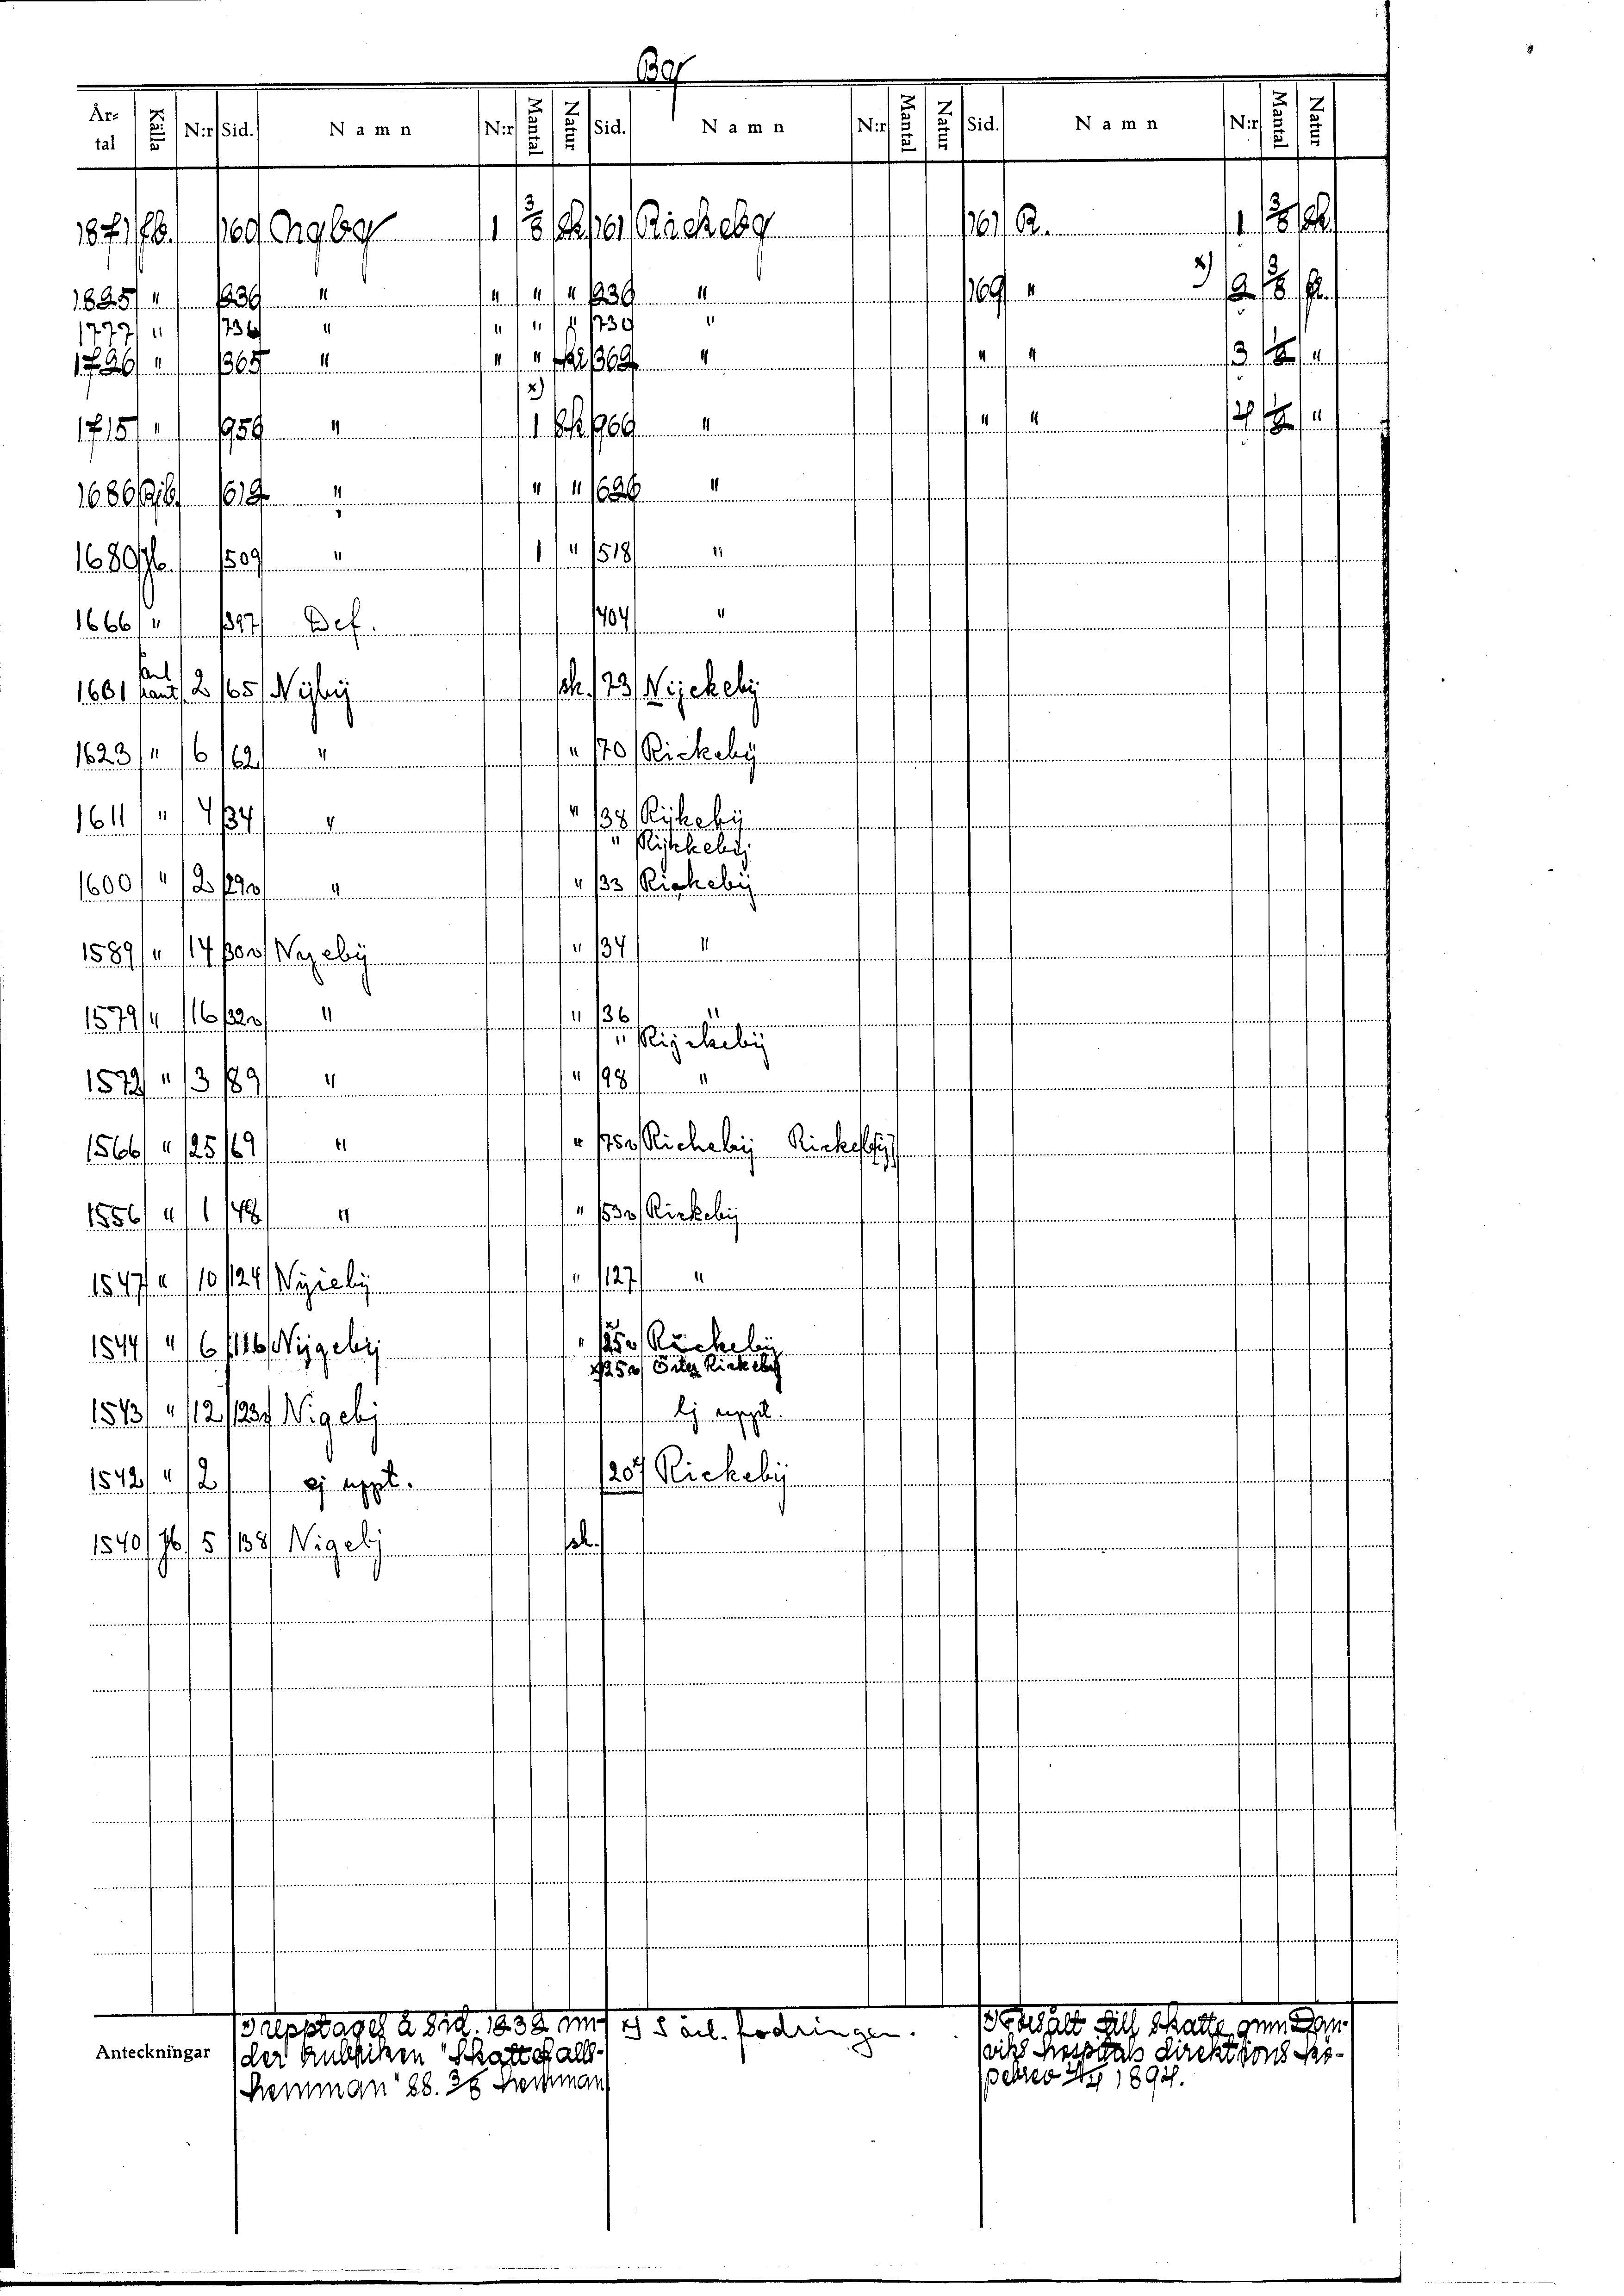 By
År-tal Källa N:r Sid. Namn N:r Mantal Natur Sid. Namn N:r Mantal Natur Sid. Namn N:r Mantal Natur
1871 Jb. 160 Ongby 1 3/8 Sk 161 Rickeby 161 R. 1 3/8 Sk.
1825 " 236 " " " " 239 " 169 " x) 2 3/8 fr.
1777 " 736 " " " " 739 "
1726 " 365 " " " kr 369 " " " 3 1/2 "
1715 " 956 " x) 1 Sk 966 " " " 4 1/2 "
1686 Rjb. 612 " " " 626 "
1680 Jb 509 " 1 " 518 "
1666 " 397 Def. 404 "
1631 årl ränt. 2 65 Nÿbÿ sk. 73 Nijckebÿ
1623 " 6 62 " " 70 Rickebÿ
1611 " 4 34 " " 38 Rÿkebÿ
" Rijkkebÿ
1600 " 2 29v " " 33 Rickebÿ
1589 " 14 30v Nyebÿ " 34 "
1579 " 16 32v " " 36 "
" Rijckebÿ
1572 " 3 89 " " 98 "
1566 " 25 69 " " 75v Richebÿ Rickeb[ÿ]
1556 " 1 48 " " 53v Rickebÿ
1547 " 10 124 Nÿiebÿ " 127 "
1544 " 6 116 Nÿgebÿ " 125v Rickebÿ
x) 125v Öster Rickebÿ
1543 " 12 123v Nigebj Ej uppt.
1542 " 2 ej uppt. 207 Rickebÿ
1540 Jb 5 138 Nigebj sk.
Anteckningar
x) Upptages å sid. 1232 un-
der rubriken "Skattefalls-
hemman" 88. 3/8 hemman
x) I årl. fodringen.
x) Försålt till skatte gnm Dan-
viks hospitals direktions kö-
pebrev 4/4 1894.